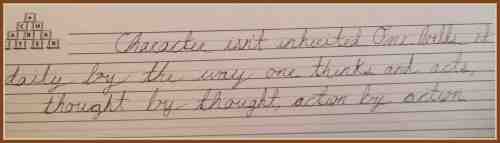 Character isn't inherited One builds it
daily by the way one thinks and acts,
thought by thought, action by action